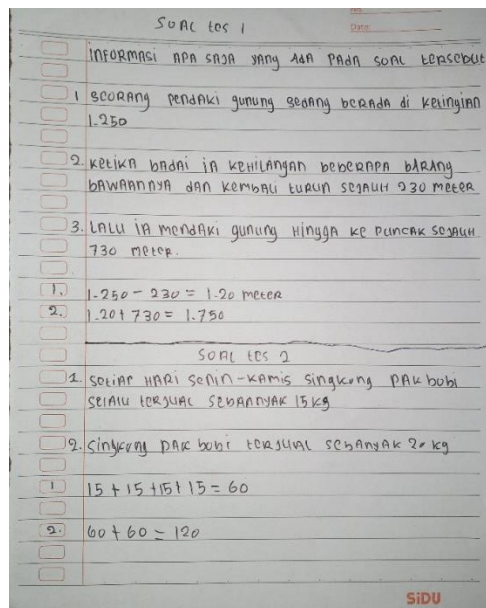 SOAL tes 1
Date
INFORMASI APA SAJA YANG ADA PADA SOAL tersebut
1 SEORANG PENDAKI GUNUNG SEDANG BERADA di Ketinggian
1.250
2. Ketika BADAI IA KEHILANGAN BEBERAPA BARANG
BAWAANNYA DAN KEMBALI TURUN SEJAUH 230 METER
3. LALU IA MENDAKI GUNUNG HINGGA KE PUNCAK SEJAUH
730 METER.
1. 1.250 - 230 = 1.20 METER
2. 1.20 + 730 = 1.750
SOAL tes 2
1. SETIAP HARI SENIN-KAMIS SINGKONG PAK BOBI
SELALU TERJUAL SEBANNYAK 15 KG
2. SINGKONG PAK BOBI TERJUAL SEBANYAK 20 KG
1 15 + 15 + 15 + 15 = 60
2. 60 + 60 = 120
SiDU